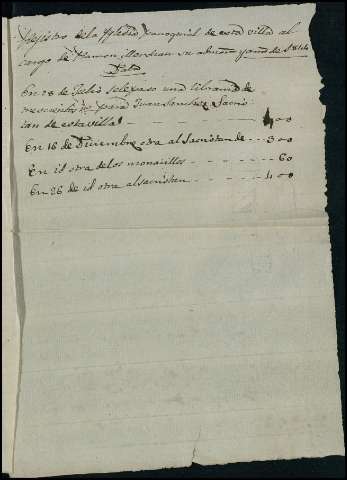 Rexistro de la Yglesia parroquial de esta villa al
cargo de Ramon en su abono y año de 1814
Data
En 28 de Julio se le paso una libranza de
trescientos para Juan Sanchez Sacris
tan de esta villa 400
En 16 de Diciembre otra al Sacristan de 300
En id otra de los monacillos 60
En 26 de id otra al sacristan 400